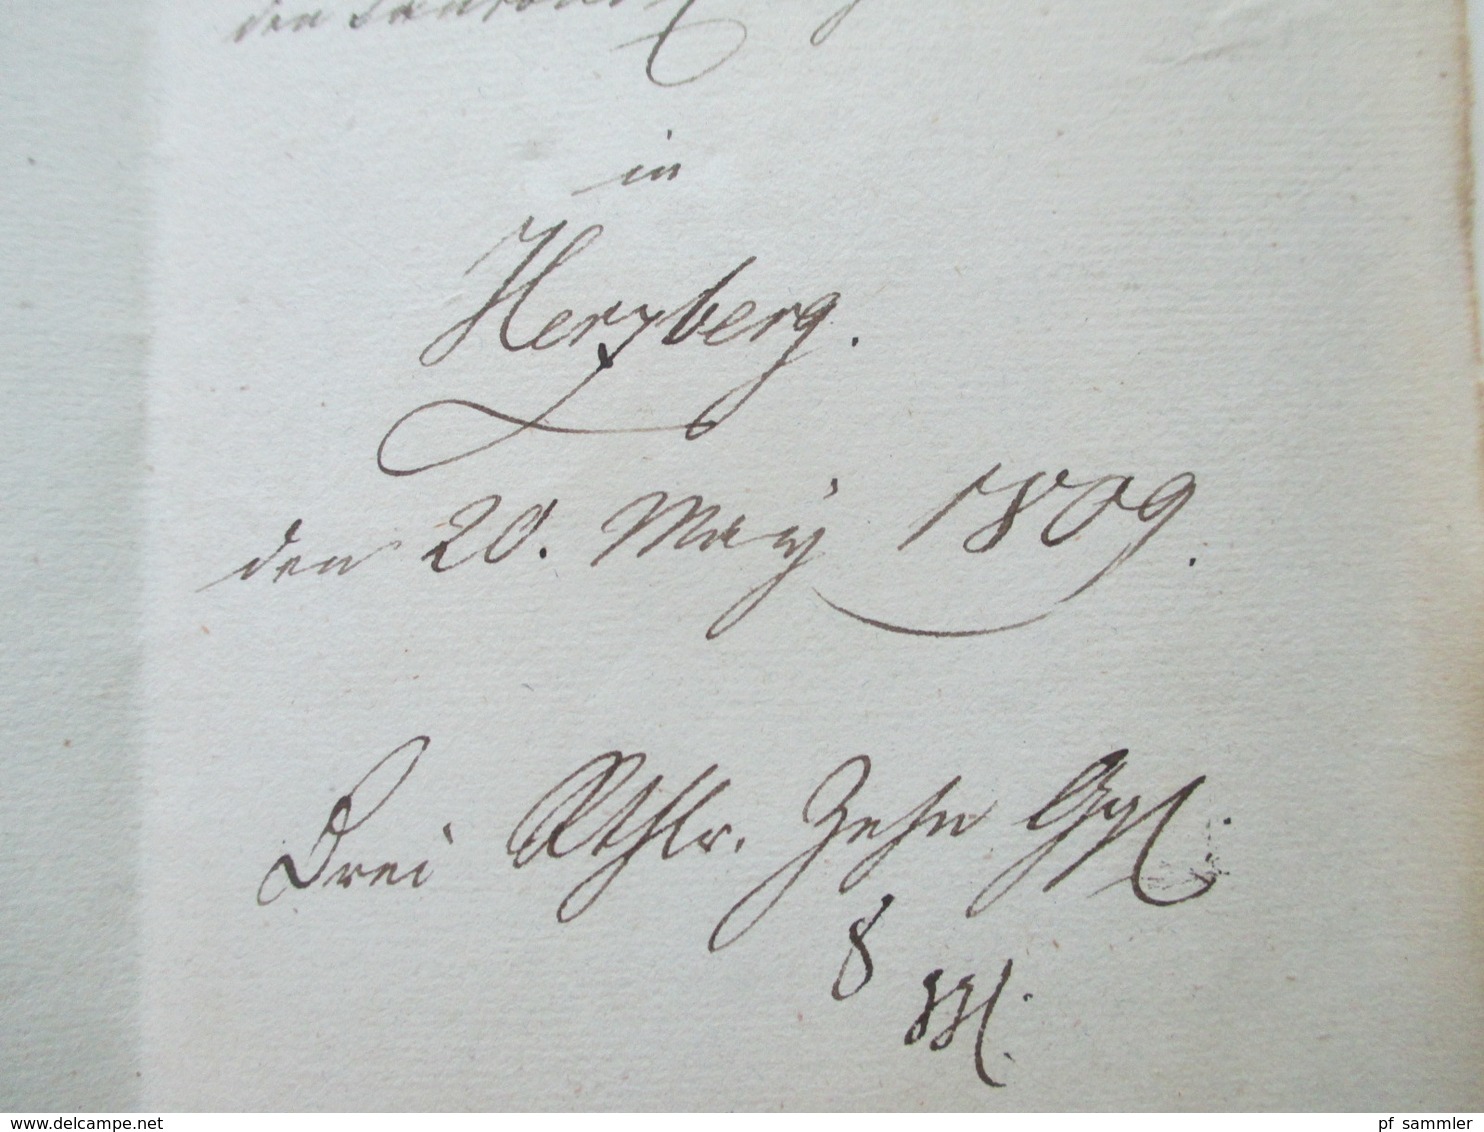 den
in
Herzberg.
den 20. May 1809.
Drei Rthlr. Zehn Ggl.
8
delcampe.net
pf_sammler